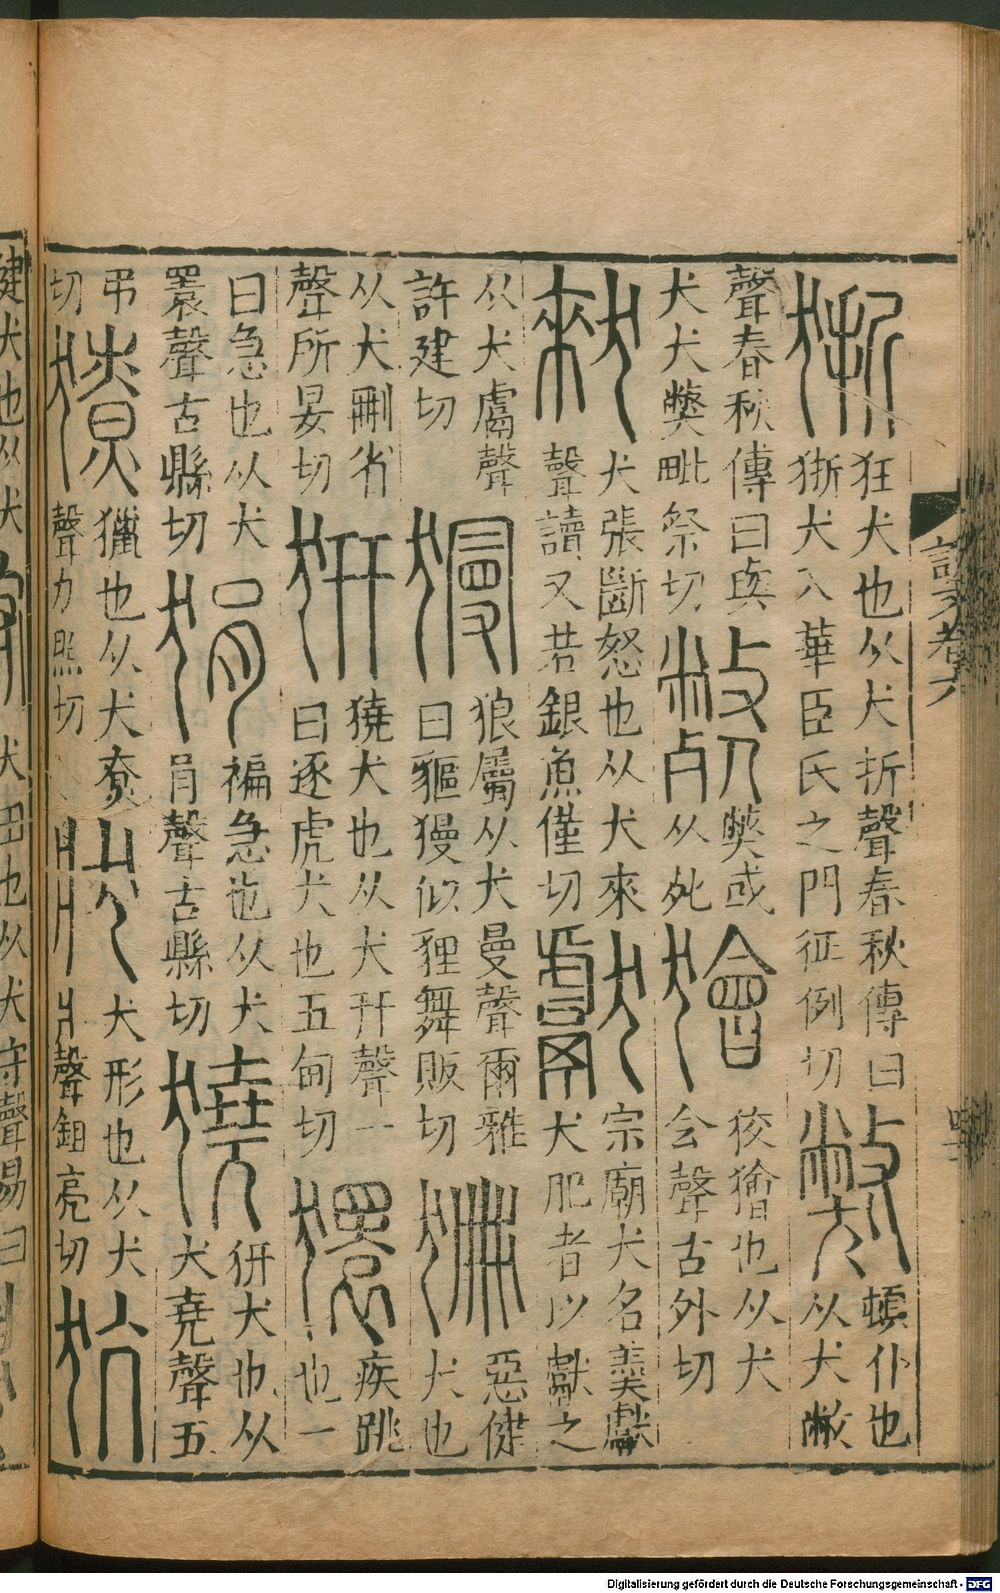 說文卷六
狾狂犬也从犬折聲春秋傳曰狾犬入華臣氏之門征例切獘頓仆也从犬敝
聲春秋傳曰與犬犬獘毗祭切斃獘或从死獪狡獪也从犬會聲古外切
猌犬張齗怒也从犬來聲讀又若銀魚僅切獻宗廟犬名羹獻犬肥者以獻之
从犬鬳聲許建切獌狼屬从犬曼聲爾雅曰貙獌似狸舞販切狦惡健犬也
从犬刪省聲所晏切獟犬也从犬幵聲一曰逐虎犬也五甸切獧疾跳也一
曰急也从犬睘聲古縣切狷褊急也从犬肙聲古縣切獟犬也从犬堯聲五
弔切獠獵也从犬尞聲力照切狀犬形也从犬爿聲鉏亮切犺
健犬也从犬 犬田也从犬守聲易曰
Digitalisierung gefördert durch die Deutsche Forschungsgemeinschaft - DFG